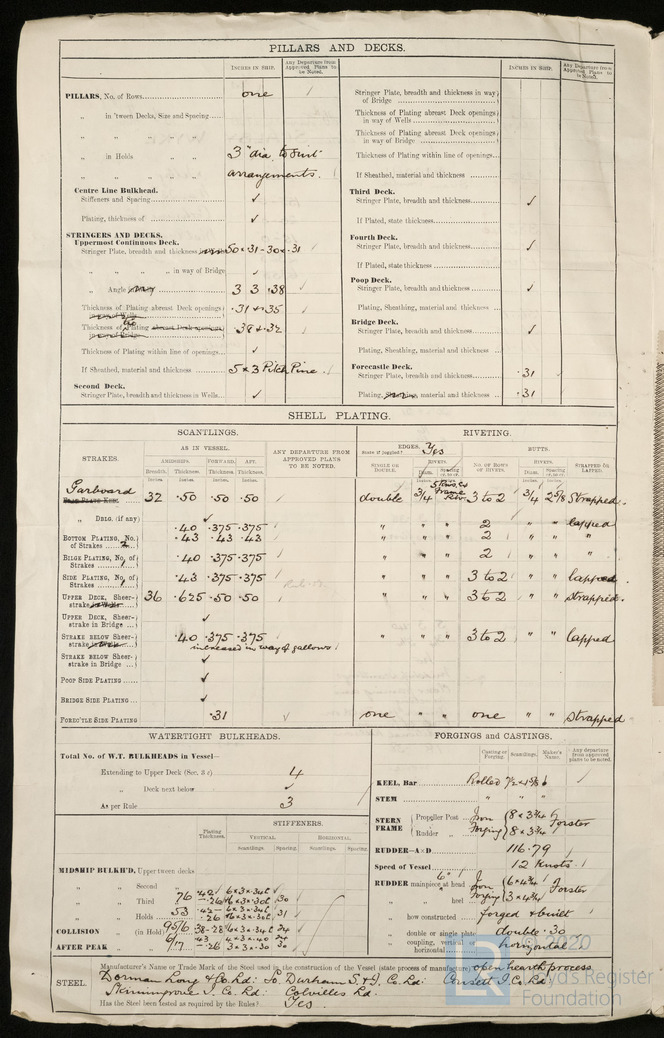 PILLARS AND DECKS.
INCHES IN SHIP.
Any Departure from Approved Plans to be Noted.
PILLARS, No. of Rows one
„ in 'tween Decks, Size and Spacing
„ „ „ „
„ in Holds „ „ 3" dia. to suit
„ „ „ „ arrangements.
Centre Line Bulkhead.
Stiffeners and Spacing ✓
Plating, thickness of ✓
STRINGERS AND DECKS.
Uppermost Continuous Deck.
Stringer Plate, breadth and thickness 50 × .31 - 30 × .31
„ „ „ „ in way of Bridge ✓
„ Angle 3 3 .38
Thickness of Plating abreast Deck openings .31 & .35
Thickness of Plating abreast Deck openings .38 & .32
Thickness of Plating within line of openings ✓
If Sheathed, material and thickness 5 × 3 Pitch Pine.
Second Deck.
Stringer Plate, breadth and thickness in Wells ✓
INCHES IN SHIP.
Any Departure from Approved Plans to be Noted.
Stringer Plate, breadth and thickness in way of Bridge
Thickness of Plating abreast Deck openings in way of Wells
Thickness of Plating abreast Deck openings in way of Bridge
Thickness of Plating within line of openings
If Sheathed, material and thickness
Third Deck.
Stringer Plate, breadth and thickness ✓
If Plated, state thickness
Fourth Deck.
Stringer Plate, breadth and thickness ✓
If Plated, state thickness
Poop Deck.
Stringer Plate, breadth and thickness ✓
Plating, Sheathing, material and thickness
Bridge Deck.
Stringer Plate, breadth and thickness ✓
Plating, Sheathing, material and thickness
Forecastle Deck.
Stringer Plate, breadth and thickness .31
Plating, Sheathing, material and thickness .31
SHELL PLATING.
SCANTLINGS.
RIVETING.
STRAKES.
AS IN VESSEL.
AMIDSHIPS. FORWARD. AFT.
Breadth. Thickness. Thickness. Thickness.
Inches. Inches. Inches. Inches.
ANY DEPARTURE FROM APPROVED PLANS TO BE NOTED.
EDGES. State if joggled? Yes
BUTTS.
SINGLE OR DOUBLE.
RIVETS. Diam. Spacing
NO. OF ROWS OF RIVETS.
RIVETS. Diam. Spacing
STRAPPED OR LAPPED.
Garboard 32 .50 .50 .50 double 3/4 3 to 2 3/4 2 5/8 Strapped.
„ DBLG. (if any) ✓
BOTTOM PLATING, No. of Strakes 2 .40 .375 .375 „ „ „ 2 „ „ lapped
.43 .43 .43 „ „ „ 2 „ „ „
BILGE PLATING, No. of Strakes 1 .40 .375 .375 „ „ „ 2 „ „ „
SIDE PLATING, No. of Strakes 1 .43 .375 .375 „ „ „ 3 to 2 „ „ lapped.
UPPER DECK, Sheerstrake 36 .625 .50 .50 „ „ „ 3 to 2 „ „ strapped.
UPPER DECK, Sheerstrake in Bridge ✓
STRAKE BELOW Sheerstrake .40 .375 .375 „ „ „ 3 to 2 „ „ lapped
increased in way of gallows
STRAKE BELOW Sheerstrake in Bridge ✓
POOP SIDE PLATING ✓
BRIDGE SIDE PLATING ✓
FORE'C'TLE SIDE PLATING .31 one „ „ one „ „ strapped
WATERTIGHT BULKHEADS.
Total No. of W.T. BULKHEADS in Vessel—
Extending to Upper Deck (Sec. 3 c) 4
„ Deck next below ✓
As per Rule 3
STIFFENERS.
Plating Thickness.
VERTICAL. HORIZONTAL.
Scantlings. Spacing. Scantlings. Spacing.
MIDSHIP BULKH'D, Upper tween decks
„ „ Second „
„ „ Third „ 76
„ „ Holds 53
COLLISION „ (in Hold)
AFTER PEAK „ „
FORGINGS and CASTINGS.
Casting or Forging. Scantlings. Maker's Name. Any departure from approved plans to be noted.
KEEL, Bar Rolled
STEM „ „ „
STERN FRAME Propeller Post Iron 8 × 3 3/4 Forster
Rudder „ Forging 8 × 3 3/4
RUDDER—A × D 116.79
Speed of Vessel 12 knots.
RUDDER mainpiece at head Iron 6 × 4 3/4 Forster
„ „ heel Forging 3 × 4 3/4
„ how constructed forged & built
„ double or single plate double .30
„ coupling, vertical or horizontal horizontal
STEEL.
Manufacturer's Name or Trade Mark of the Steel used in the construction of the Vessel (state process of manufacture) open hearth process
Dorman Long & Co. Ld: So Durham S. & I. Co. Ld: Consett I. Co. Ld:
Skinningrove I. Co. Ld: Colvilles Ld.
Has the Steel been tested as required by the Rules? Yes.
LR
© 2020
Lloyd's Register
Foundation